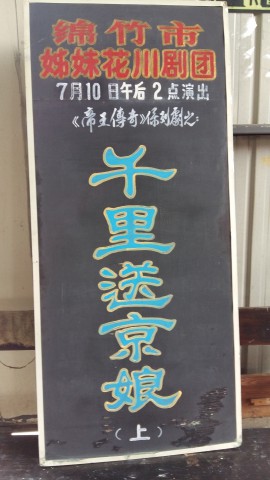 绵竹市
姊妹花川剧团
7月10日午后2点演出
《帝王傳奇》係列劇之:
千里送京娘
（上）